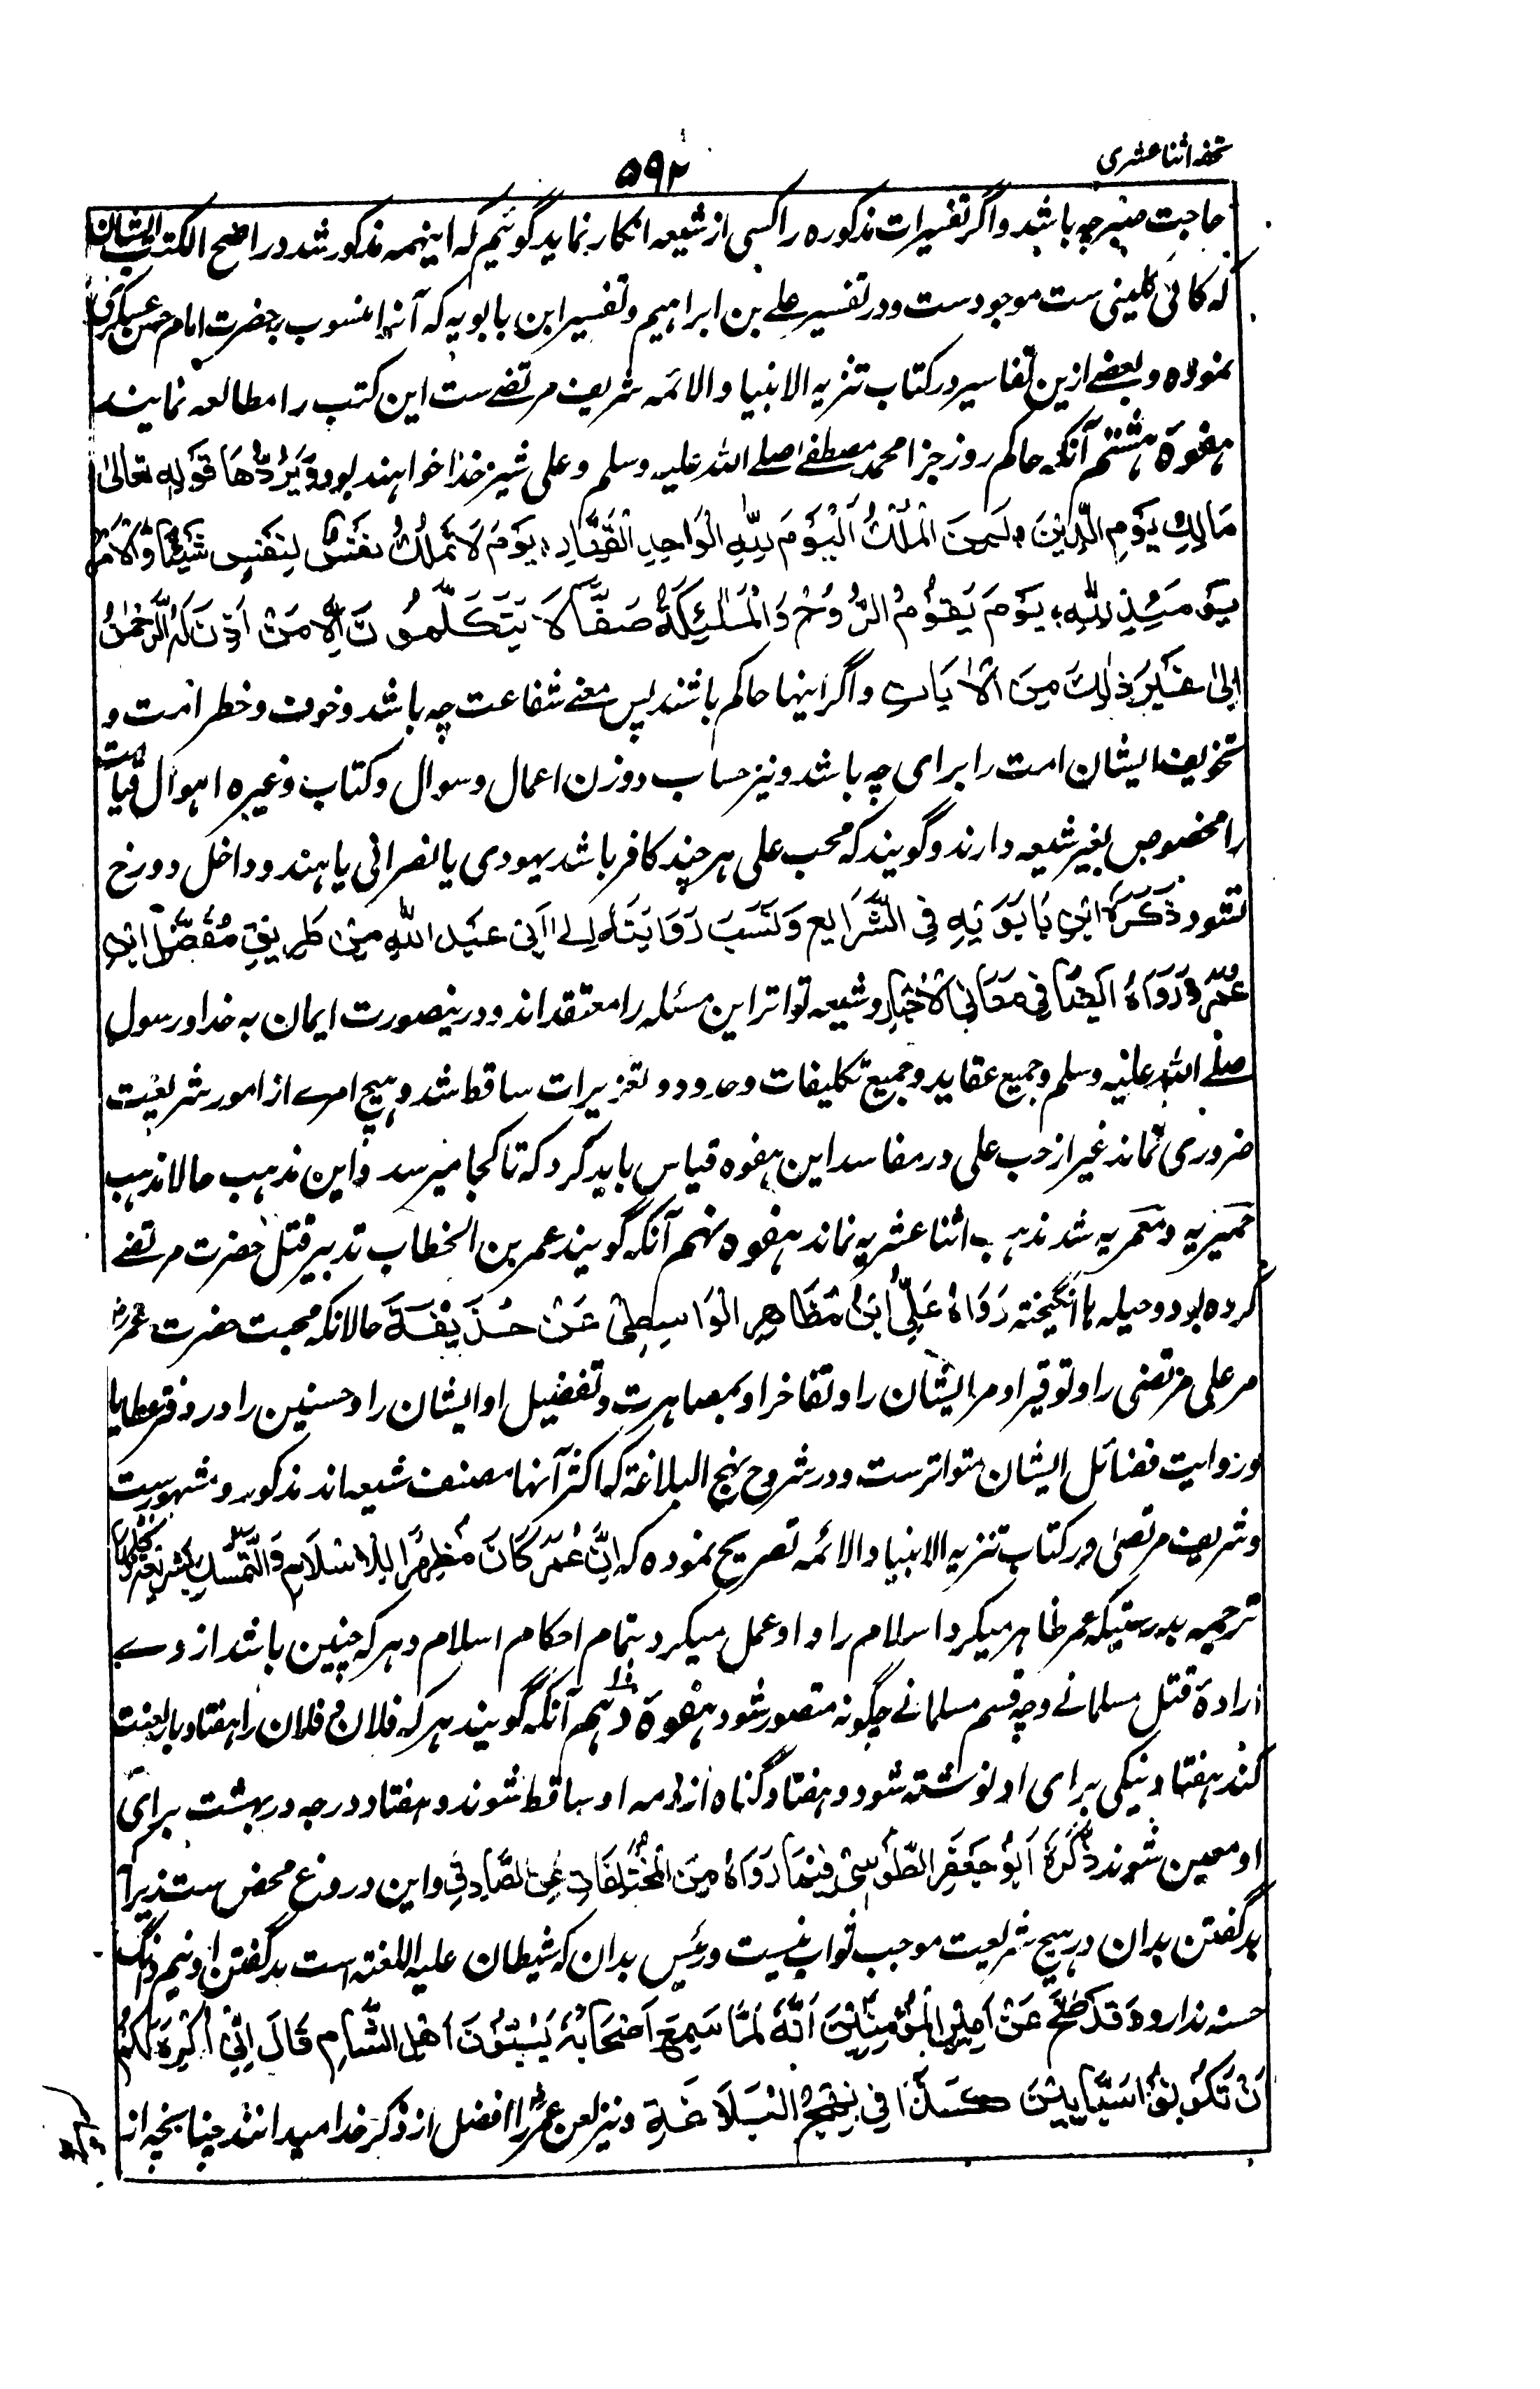 تحفه اثنا عشری
۵۹۲
حاجت صنبر چه باشد و اگر تفسیرات مذکوره را کسی از شیعه انکار نماید گوئیم که اینهمه مذکور شد در اصح الکتب ایشان
که کافی کلینی ست موجودست و در تفسیر علے بن ابراهیم و تفسیر ابن بابویه که آنرا منسوب بحضرت امام حسن عسکری
نموده و بعضے ازین تفاسیر در کتاب تنزیه الانبیا و الائمه شریف مرتضے ست این کتب را مطالعه نمایند
هفوة هشتم آنکه حاکم روز جزا محمد مصطفے صلے الله علیه وسلم و علی شیر خدا خواهند بود وَیَرُدُّهَا قَوْلُهٗ تعالیٰ
مَالِكِ یَوْمِ الدِّیْنِ ؛ لِمَنِ الْمُلْكُ الْیَوْمَ لِلّٰهِ الْوَاحِدِ الْقَهَّارِ ؛ یَوْمَ لَا تَمْلِكُ نَفْسٌ لِنَفْسٍ شَیْئًا وَّالْاَمْرُ
یَوْمَئِذٍ لِلّٰهِ ؛ یَوْمَ یَقُوْمُ الرُّوْحُ وَالْمَلٰئِكَةُ صَفًّا لَا یَتَكَلَّمُوْنَ اِلَّا مَنْ اَذِنَ لَهُ الرَّحْمٰنُ
اِلیٰ غَیْرِ ذٰلِكَ مِنَ الْاٰیَاتِ و اگر اینها حاکم باشند پس معنے شفاعت چه باشد و خوف و خطر امت و
تخویف ایشان امت را برای چه باشد و نیز حساب و وزن اعمال و سوال و کتاب و غیره اهوال قیامت
را مخصوص بغیر شیعه دارند و گویند که محب علی هر چند کافر باشد یهودی یا نصرانی یا هندو داخل دوزخ
نشود ذَكَرَهُ ابْنُ بَابَوَیْهِ فِی الشَّرَایِعِ وَنَسَبَ رِوَایَتَهٗ اِلٰی اَبِیْ عَبْدِ اللّٰهِ مِنْ طَرِیْقِ مُفَضَّلِ ابْنِ
عُمَرَ وَرَوَاهُ اَیْضًا فِیْ مَعَانِی الْاَخْبَارِ و شیعه تواتر این مسئله را معتقد اند و درینصورت ایمان به خدا و رسول
صلے الله علیه وسلم و جمیع عقاید و جمیع تکلیفات و حدود و تعزیرات ساقط شد و هیچ امرے از امور شریعت
ضروری نماند غیر از حب علی در مفاسد این هفوه قیاس باید کرد که تا کجا میرسد و این مذهب حالا مذهب
حمیریه و معمریه شد مذهب اثنا عشریه نماند هفوه نهم آنکه گویند عمر بن الخطاب تدبیر قتل حضرت مرتضے
کرده بود و حیله ها انگیخته رَوَاهُ عَلِیُّ ابْنُ مُظَاهِرِ الْوَاسِطِیْ عَنْ حُذَیْفَةَ حالانکه محبت حضرت عمرؓ
مر علی مرتضی را و توقیر او مر ایشان را و تفاخر او بمصاهرت و تفضیل او ایشان را و حسنین را در دفتر عطایا
و روایت فضائل ایشان متواترست و در شروح نهج البلاغة که اکثر آنها مصنف شیعه اند مذکور و مشهورست
و شریف مرتضیٰ در کتاب تنزیه الانبیا و الائمه تصریح نموده که اِنَّ عُمَرَ كَانَ مُظْهِرًا لِلْاِسْلَامِ وَالتَّمَسُّكِ بِشَرَایِعِهٖ كُلِّهَا
ترجمه بدرستیکه عمر ظاهر میکرد اسلام را و او عمل میکرد بتمام احکام اسلام و هر که چنین باشد از وے
ارادة قتل مسلمانے و چه قسم مسلمانے چگونه متصور شود هفوة دهم آنکه گویند هر که فلان و فلان را هفتاد بار لعنت
کند هفتاد نیکی برای او نوشته شود و هفتاد گناه از ذمه او ساقط شوند و هفتاد درجه در بهشت برای
او معین شوند ذَكَرَهُ اَبُوْ جَعْفَرِ الطُّوْسِیْ فِیْمَا رَوَاهُ مِنَ الْمُخْتَلَفَاتِ عَنِ الصَّادِقِ و این دروغ محض ست زیرا که
بد گفتن بدان در هیچ شریعت موجب ثواب نیست و رئیس بدان که شیطان علیه اللعنة است بد گفتن او نیم دانگ
حسنه ندارد وَقَدْ صَحَّ عَنْ اَمِیْرِ الْمُؤْمِنِیْنَ اَنَّهٗ لَمَّا سَمِعَ اَصْحَابَهٗ یَسُبُّوْنَ اَهْلَ الشَّامِ قَالَ اِنِّیْ اَكْرَهُ لَكُمْ
اَنْ تَكُوْنُوْا سَبَّابِیْنَ كَذَا فِیْ نَهْجِ الْبَلَاغَةِ و نیز لعن عمرؓ را افضل از ذکر خدا میدانند چنانچه از